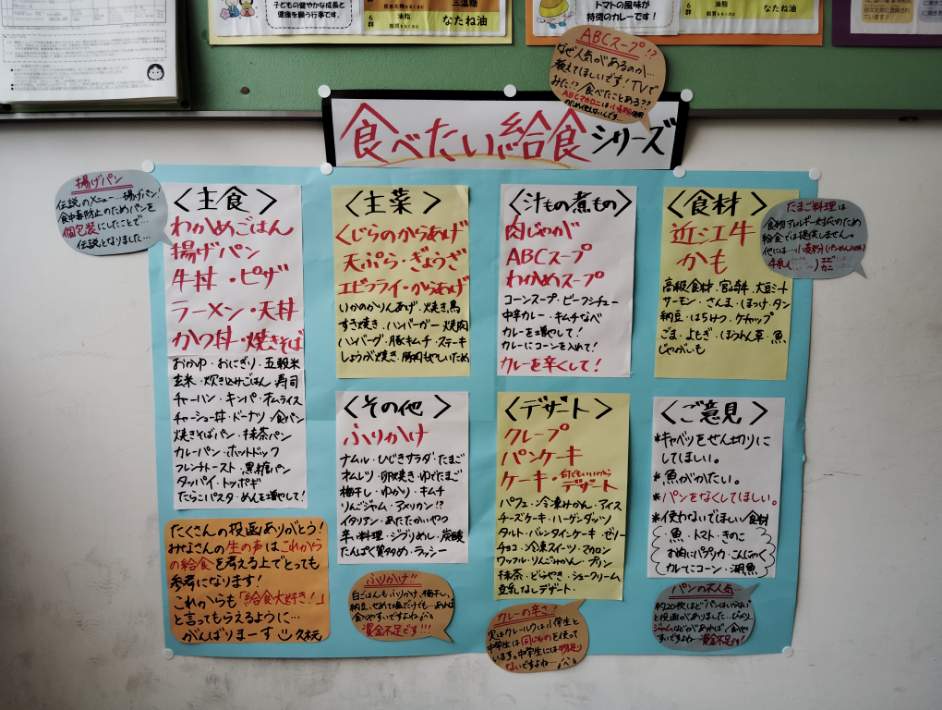 子どもの健やかな成長と
健康を願う行事です。
トマトの風味が
特徴のカレーです!
6群
油脂
なたね油
6群
油脂
なたね油
ABCスープ!?
なぜ人気があるのか…
教えてほしいです!TVで
みた!?食べたことある??
食べたい給食シリーズ
揚げパン
伝説のメニュー…揚げパン!
食中毒防止のためパンを
個包装にしたことで…
伝説となりました…
<主食>
わかめごはん
揚げパン
牛丼・ピザ
ラーメン・天丼
かつ丼・焼きそば
おかゆ・おにぎり・五穀米
玄米・炊き込みごはん・寿司
チャーハン・キンパ・オムライス
チャーシュー丼・ドーナツ・食パン
焼きそばパン・抹茶パン
カレーパン・ホットドック
フレンチトースト・黒糖パン
タッパイ・トッポギ
たらこパスタ・めんを増やして!
<主菜>
くじらのからあげ
天ぷら・ぎょうざ
エビフライ・からあげ
いかのかりんあげ・焼き鳥
すき焼き・ハンバーガー・焼肉
ハンバーグ・豚キムチ・ステーキ
しょうが焼き・豚肉もやしいため
<汁もの煮もの>
肉じゃが
ABCスープ
わかめスープ
コーンスープ・ビーフシチュー
中辛カレー・キムチなべ
カレーを増やして!
カレーにコーンを入れて!
カレーを辛くして!
<食材>
近江牛
かも
高級食材・宮崎牛・大豆ミート
サーモン・さんま・ほっけ・タン
納豆・はちみつ・ケチャップ
ごま・よもぎ・ほうれん草・魚
じゃがいも
たまご料理は
食物アレルギー対応のため
給食では提供しません。
<その他>
ふりかけ
ナムル・ひじきサラダ・たまご
オムレツ・卵焼き・ゆでたまご
梅干し・ゆかり・キムチ
りんごジャム・アメリカン!?
イタリアン・あたたかいやつ
辛い料理・ジブリめし・炭酸
たんぱく質多め・ラッシー
<デザート>
クレープ
パンケーキ
ケーキ・何でもいいからデザート
パフェ・冷凍みかん・アイス
チーズケーキ・ハーゲンダッツ
タルト・バレンタインケーキ・ゼリー
チョコ・冷凍スイーツ・マカロン
ワッフル・りんごみかん・プリン
抹茶・どらやき・シュークリーム
豆乳なしデザート・
<ご意見>
*キャベツをせん切りに
してほしい。
*魚がかたい。
*パンをなくしてほしい。
*使わないでほしい食材
・魚・トマト・きのこ
お肉にパプリカ・こんにゃく
カレーにコーン・湖魚
たくさんの投函ありがとう!
みなさんの生の声はこれから
の給食を考える上でとっても
参考になります!
これからも「給食大好き!」
と言ってもらえるように…
がんばりまーす
ふりかけ!!
白ごはんもふりかけ、梅干し、
納豆、せめて塩だけでも…あれば
食べやすいですよね…
資金不足です!!!
カレーの辛さ!
実はカレールウは小学生と
中学生は同じものを使って
います。中学生には物足り
ないですよね…
パンの不人気…
約20枚ほど"パンはいらない"
と投函がありました…
ジャムなどがあれば食べや
すいですよね…資金不足です!